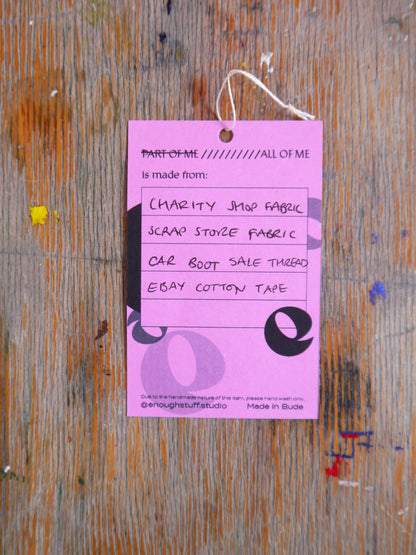 PART OF ME //////////ALL OF ME
is made from:
CHARITY SHOP FABRIC
SCRAP STORE FABRIC
CAR BOOT SALE THREAD
EBAY COTTON TAPE
Due to the handmade nature of this item, please hand wash only.
@enoughstuff.studio Made in Bude